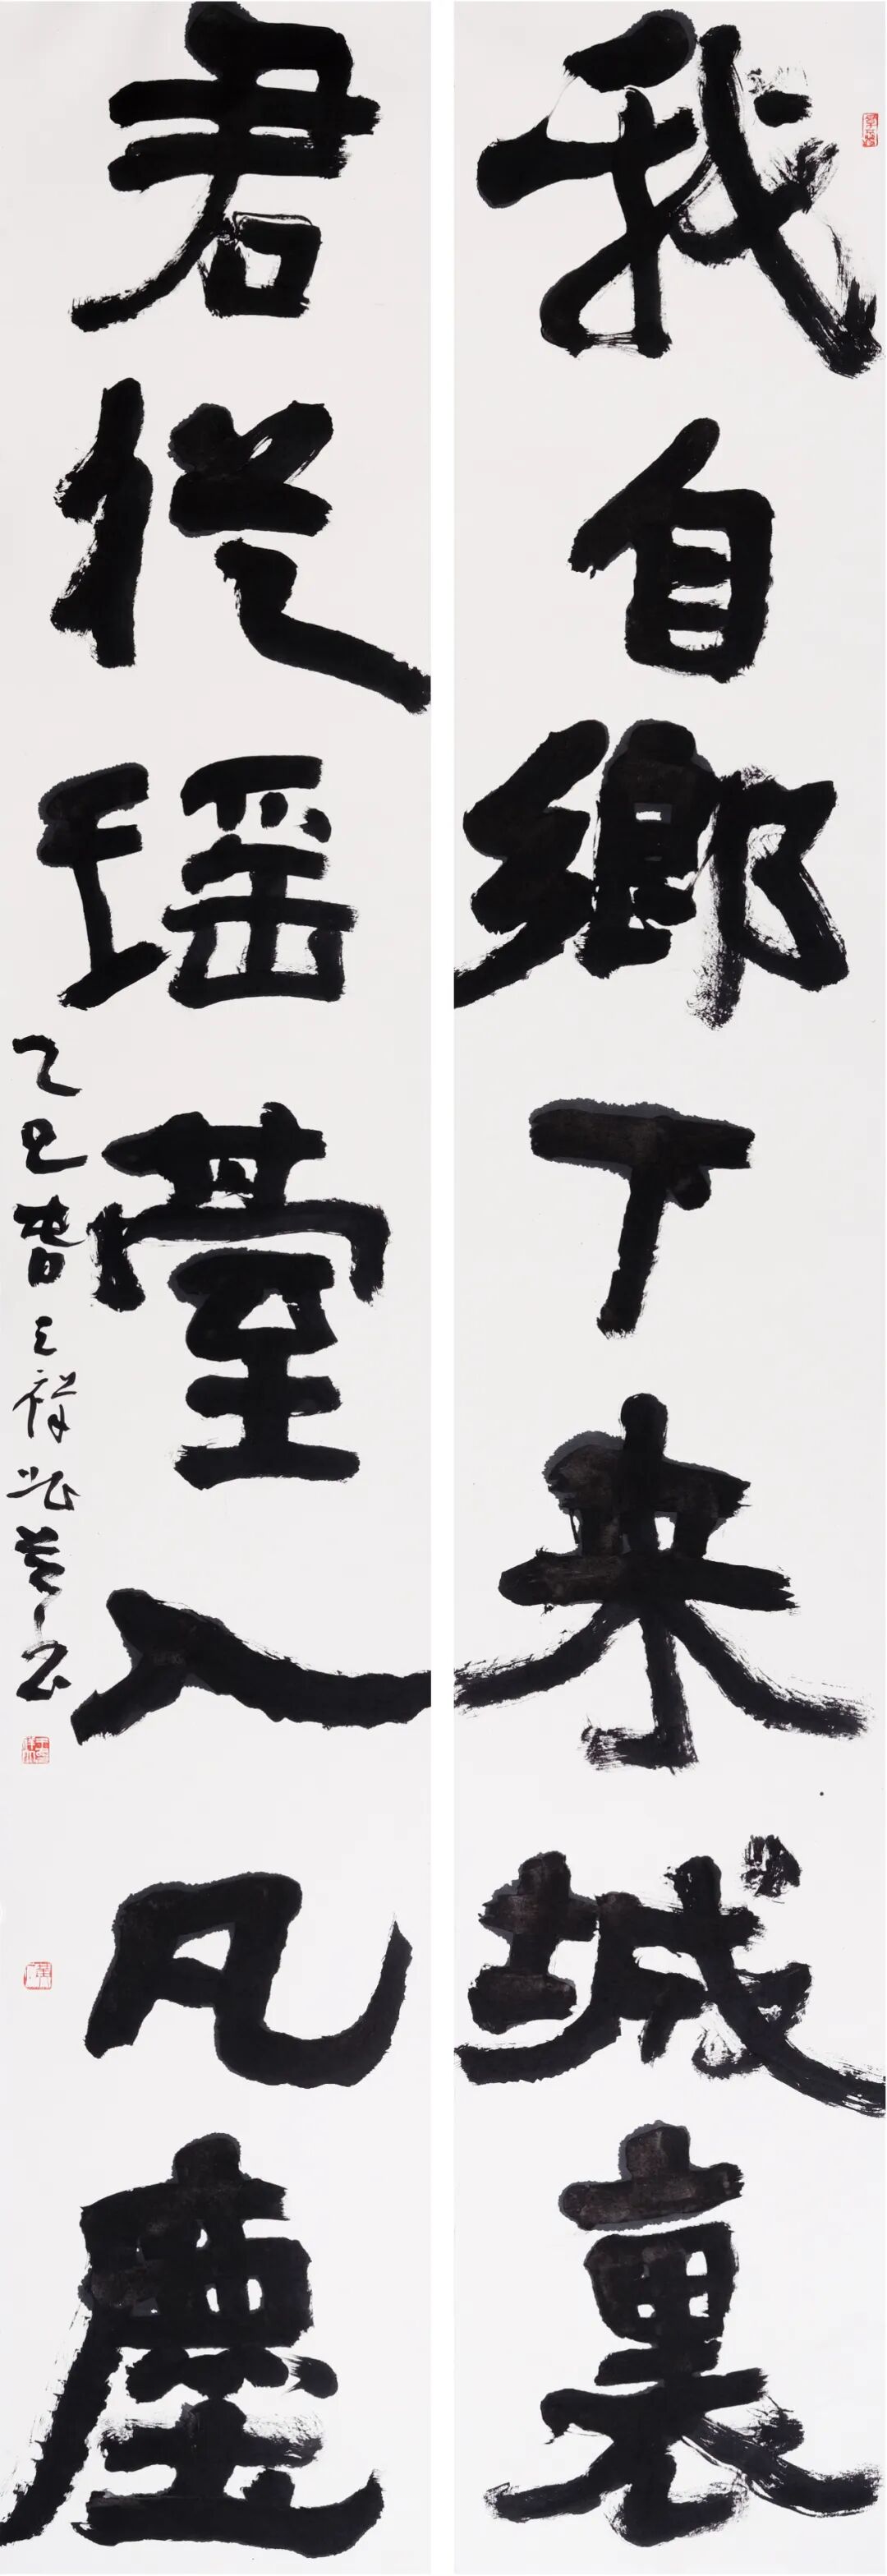 我自鄉下来城裏
君從瑶臺入凡塵
乙巳春王祥